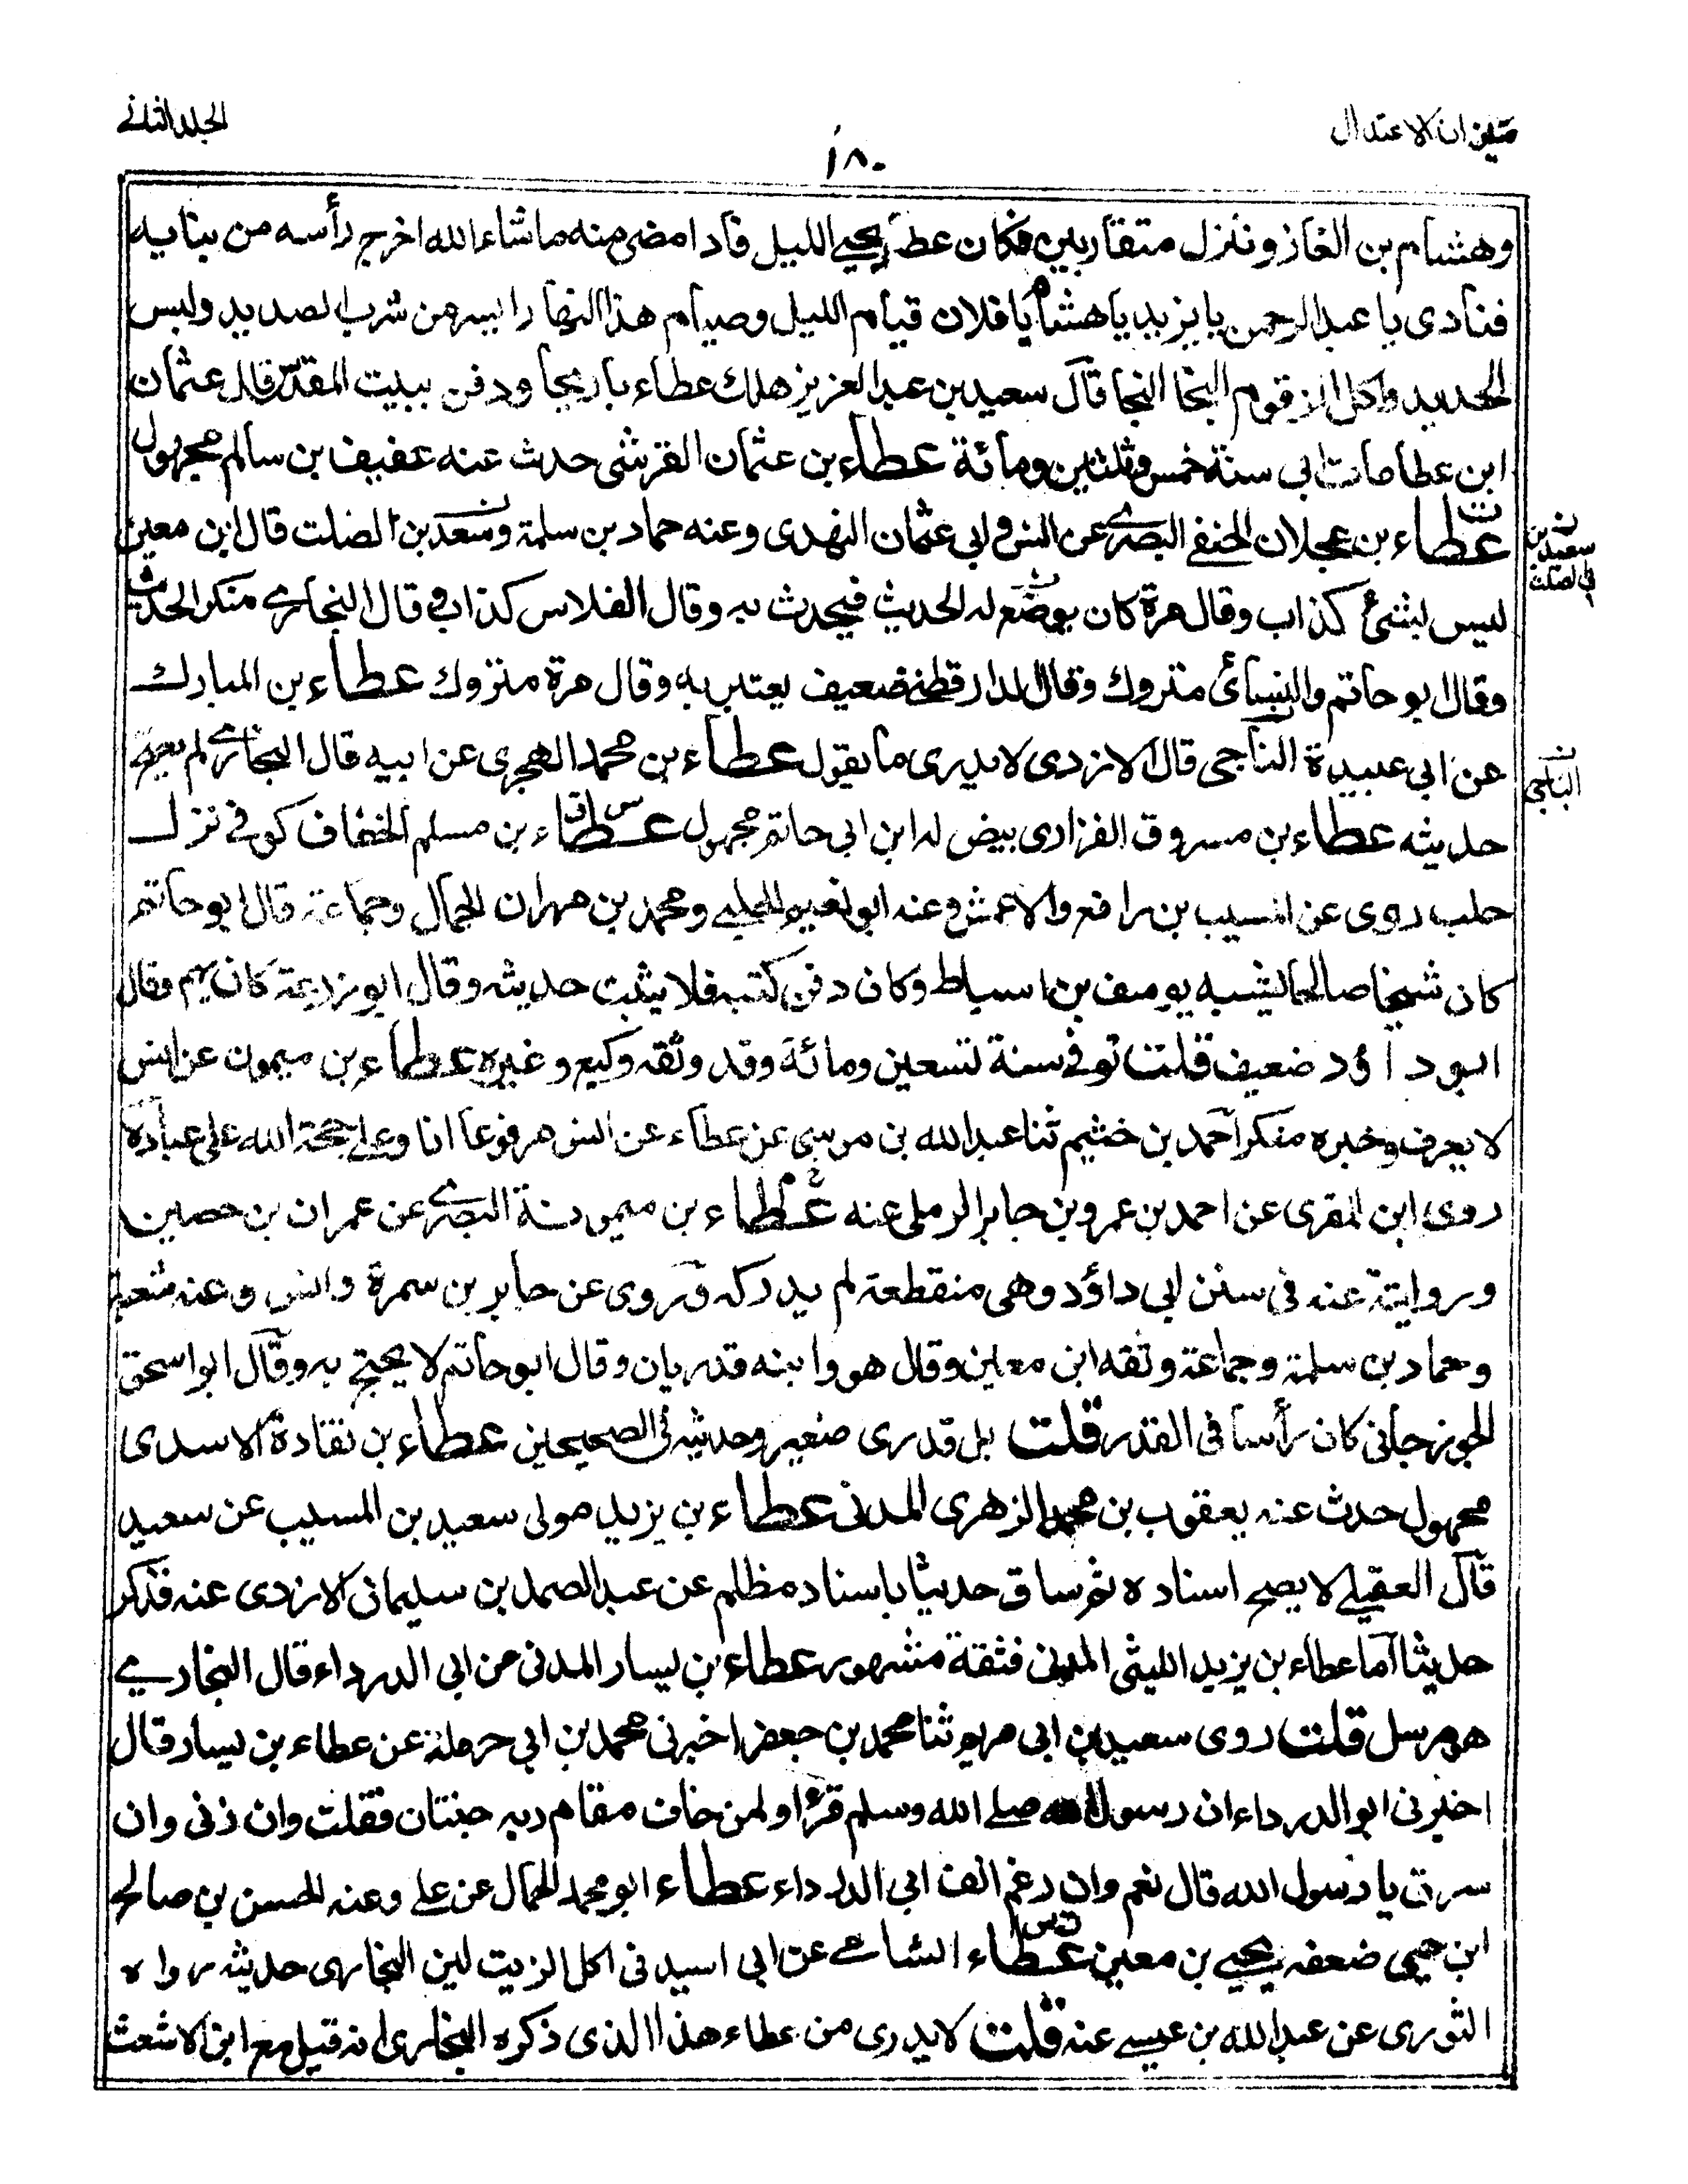 ميزان الاعتدال
١٨٠
الجلد الثانے
وهشام بن الغاز وننزل متقاربين فكان عطا يحيے الليل فاذا مضى منه ما شاء الله اخرج رأسه من بنايه
فنادى يا عبد الرحمن يا يزيد يا هشام يا فلان قيام الليل وصيام هذا النهار ايسر من شرب الصديد ولبس
الحديد واكل الزقوم النجا النجا قال سعيد بن عبد العزيز هلك عطاء باريحا ودفن ببيت المقدس قال عثمان
ابن عطا مات ابى سنة خمس وثلثين ومائة عطاء بن عثمان القرشى حدث عنه عفيف بن سالم مجهول
ت
عطاء بن عجلان الحنفے البصرے عن انس وابى عثمان النهدى وعنه حماد بن سلمة وسعد بن الصلت قال ابن معين
ن سعيد بن ابى الصلت
ليس بشئ كذاب وقال مرة كان يوضع له الحديث فيحدث به وقال الفلاس كذاب وقال البخارے منكر الحديث
وقال ابو حاتم والنسائى متروك وقال الدارقطنے ضعيف يعتبر به وقال مرة متروك عطاء بن المبارك
عن ابى عبيدة الناجى قال الازدى لا يدرى ما يقول عطاء بن محمد الهجرى عن ابيه قال البخارے لم يصح
ن الباجى
حديثه عطاء بن مسروق الفزارى بيض له ابن ابى حاتم مجهول عطاء بن مسلم الخفاف كوفے نزل
س ق
حلب روى عن المسيب بن رافع والاعمش وعنه ابو نعيم الحلبے ومحمد بن مهران الجمال وجماعة قال ابو حاتم
كان شيخا صالحا يشبه يوسف بن اسباط وكان دفن كتبه فلا يثبت حديثه وقال ابو زرعة كان يهم وقال
ابو داؤد ضعيف قلت توفے سنة تسعين ومائة وقد وثقه وكيع وغيره عطاء بن ميمون عن انس
لا يعرف وخبره منكر احمد بن خثيم ثنا عبد الله بن موسى عن عطاء عن انس مرفوعا انا وعلى حجة الله على عباده
روى ابن المقرى عن احمد بن عمرو بن جابر الرملى عنه عطاء بن ميمونة البصرے عن عمران بن حصين
وروايته عنه فى سنن ابى داؤد وهى منقطعة لم يدركه وروى عن جابر بن سمرة وانس وعنه شعبة
وحماد بن سلمة وجماعة وثقه ابن معين وقال هو وابنه قدريان وقال ابو حاتم لا يحتج به وقال ابو اسحق
الجوزجانى كان رأسا فى القدر قلت بل قدرى صغير وحديثه فى الصحيحين عطاء بن نقادة الاسدى
مجهول حدث عنه يعقوب بن محمد الزهرى المدنى عطاء بن يزيد مولى سعيد بن المسيب عن سعيد
قال العقيلے لا يصح اسناده ثم ساق حديثا باسناد مظلم عن عبد الصمد بن سليمان الازدى عنه فذكر
حديثا اما عطاء بن يزيد الليثى المدنى فثقة مشهور عطاء بن يسار المدنى عن ابى الدرداء قال البخارے
هو مرسل قلت روى سعيد بن ابى مريم ثنا محمد بن جعفر اخبرنى محمد بن ابى حرملة عن عطاء بن يسار قال
اخبرنى ابو الدرداء ان رسول الله صلے الله وسلم قرء ولمن خاف مقام ربه جنتان فقلت وان زنى وان
سرق يا رسول الله قال نعم وان رغم انف ابى الدرداء عطاء ابو محمد الحمال عن على وعنه الحسن بن صالح
ابن حيى ضعفه يحيے بن معين عطاء الشامے عن ابى اسيد فى اكل الزيت لين البخارى حديثه رواه
ت س
الثورى عن عبد الله بن عيسے عنه قلت لا يدرى من عطاء هذا الذى ذكره البخارى انه قتيل مع ابن الاشعث